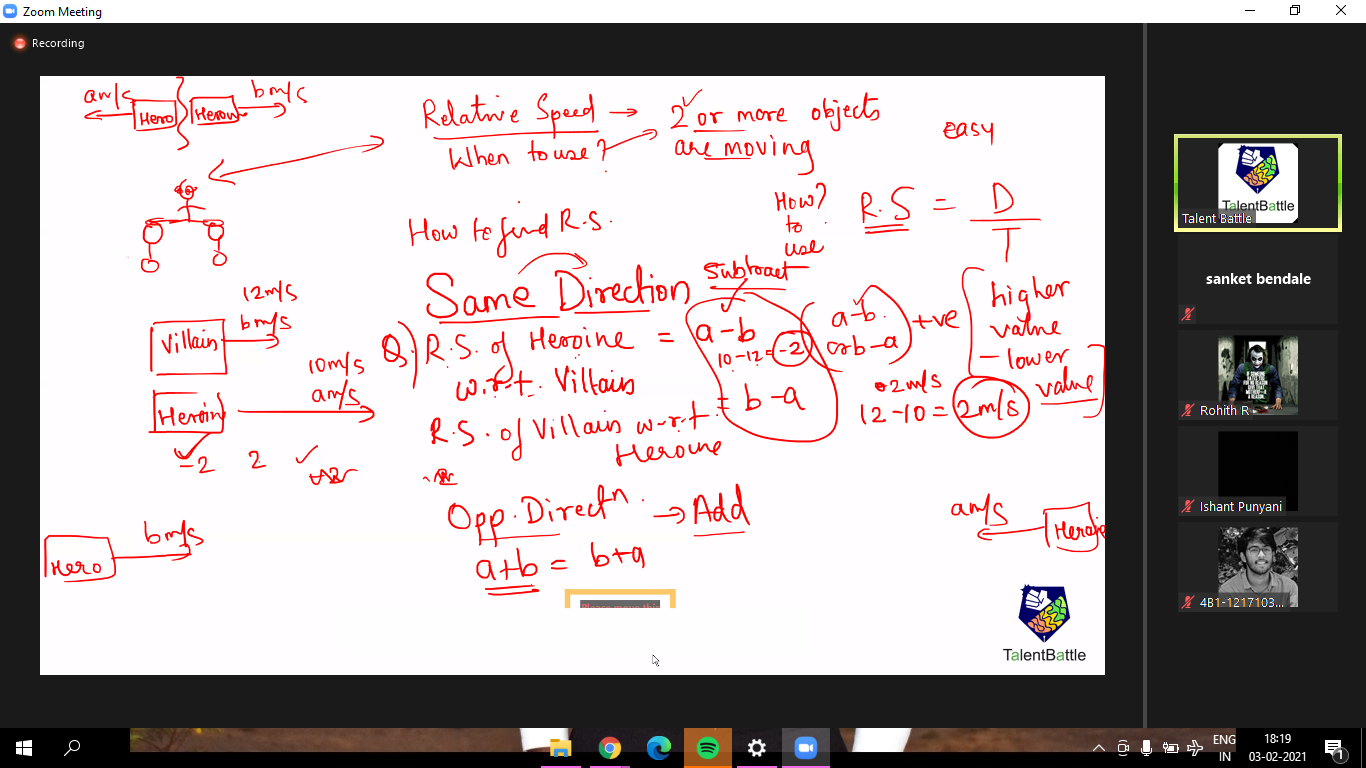 Zoom Meeting
Recording
am/s
bm/s
Hero
Heroin
Relative Speed → 2 or more objects
When to use? are moving
easy
How to find R.S.
How?
to
use
R.S = D
T
Same Direction
Subtract
12m/s
bm/s
Villain
10m/s
am/s
Heroin
-2 2
Q.) R.S. of Heroine = a-b
w.r.t. Villain
10-12=-2
a-b
or b-a
+ve
higher
value
- lower
value
-2m/s
12-10=2m/s
R.S. of Villain w.r.t. = b-a
Heroine
Opp. Directn. → Add
a+b = b+a
bm/s
Hero
am/s
Please move this
TalentBattle
TalentBattle
Talent Battle
sanket bendale
Rohith R
Ishant Punyani
4B1-1217103...
ENG
IN
18:19
03-02-2021
1